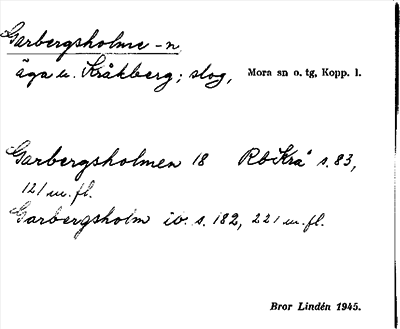 Garbergsholme -n.
äga u. Kråkberg; slog, Mora sn o. tg, Kopp. l.
Garbergsholmen 18 RbKrå s. 83,
121 m. fl.
Garbergsholm ib. s. 182, 221 m. fl.
Bror Lindén 1945.